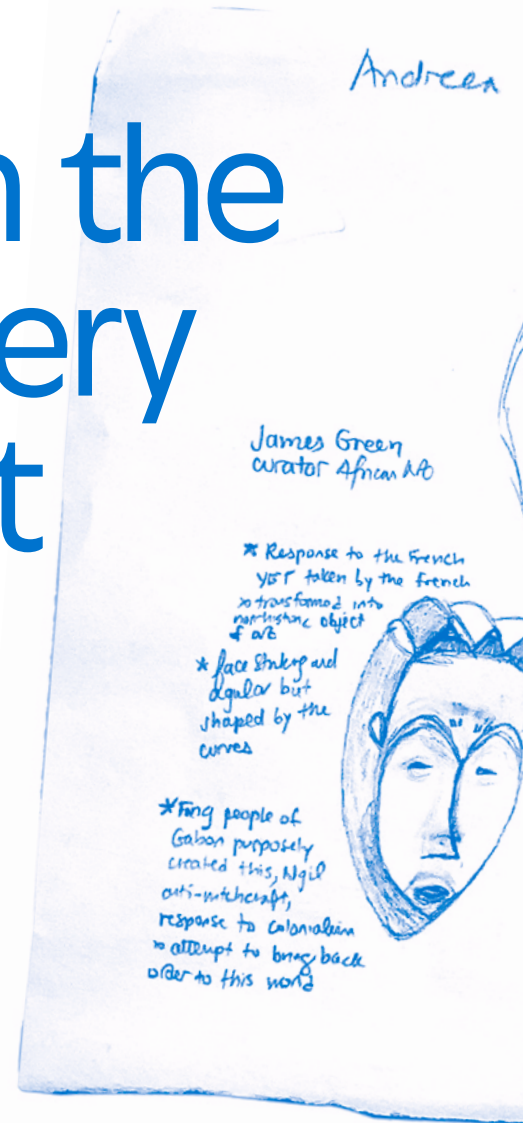 Andreea
n the
ery
t
James Green
curator African Art
* Response to the French
yet taken by the French
→ transformed into
non-historic object
of art
* face striking and
angular but
shaped by the
curves
* Fang people of
Gabon purposely
created this, Ngil
anti-witchcraft,
response to colonialism
→ attempt to bring back
order to this world